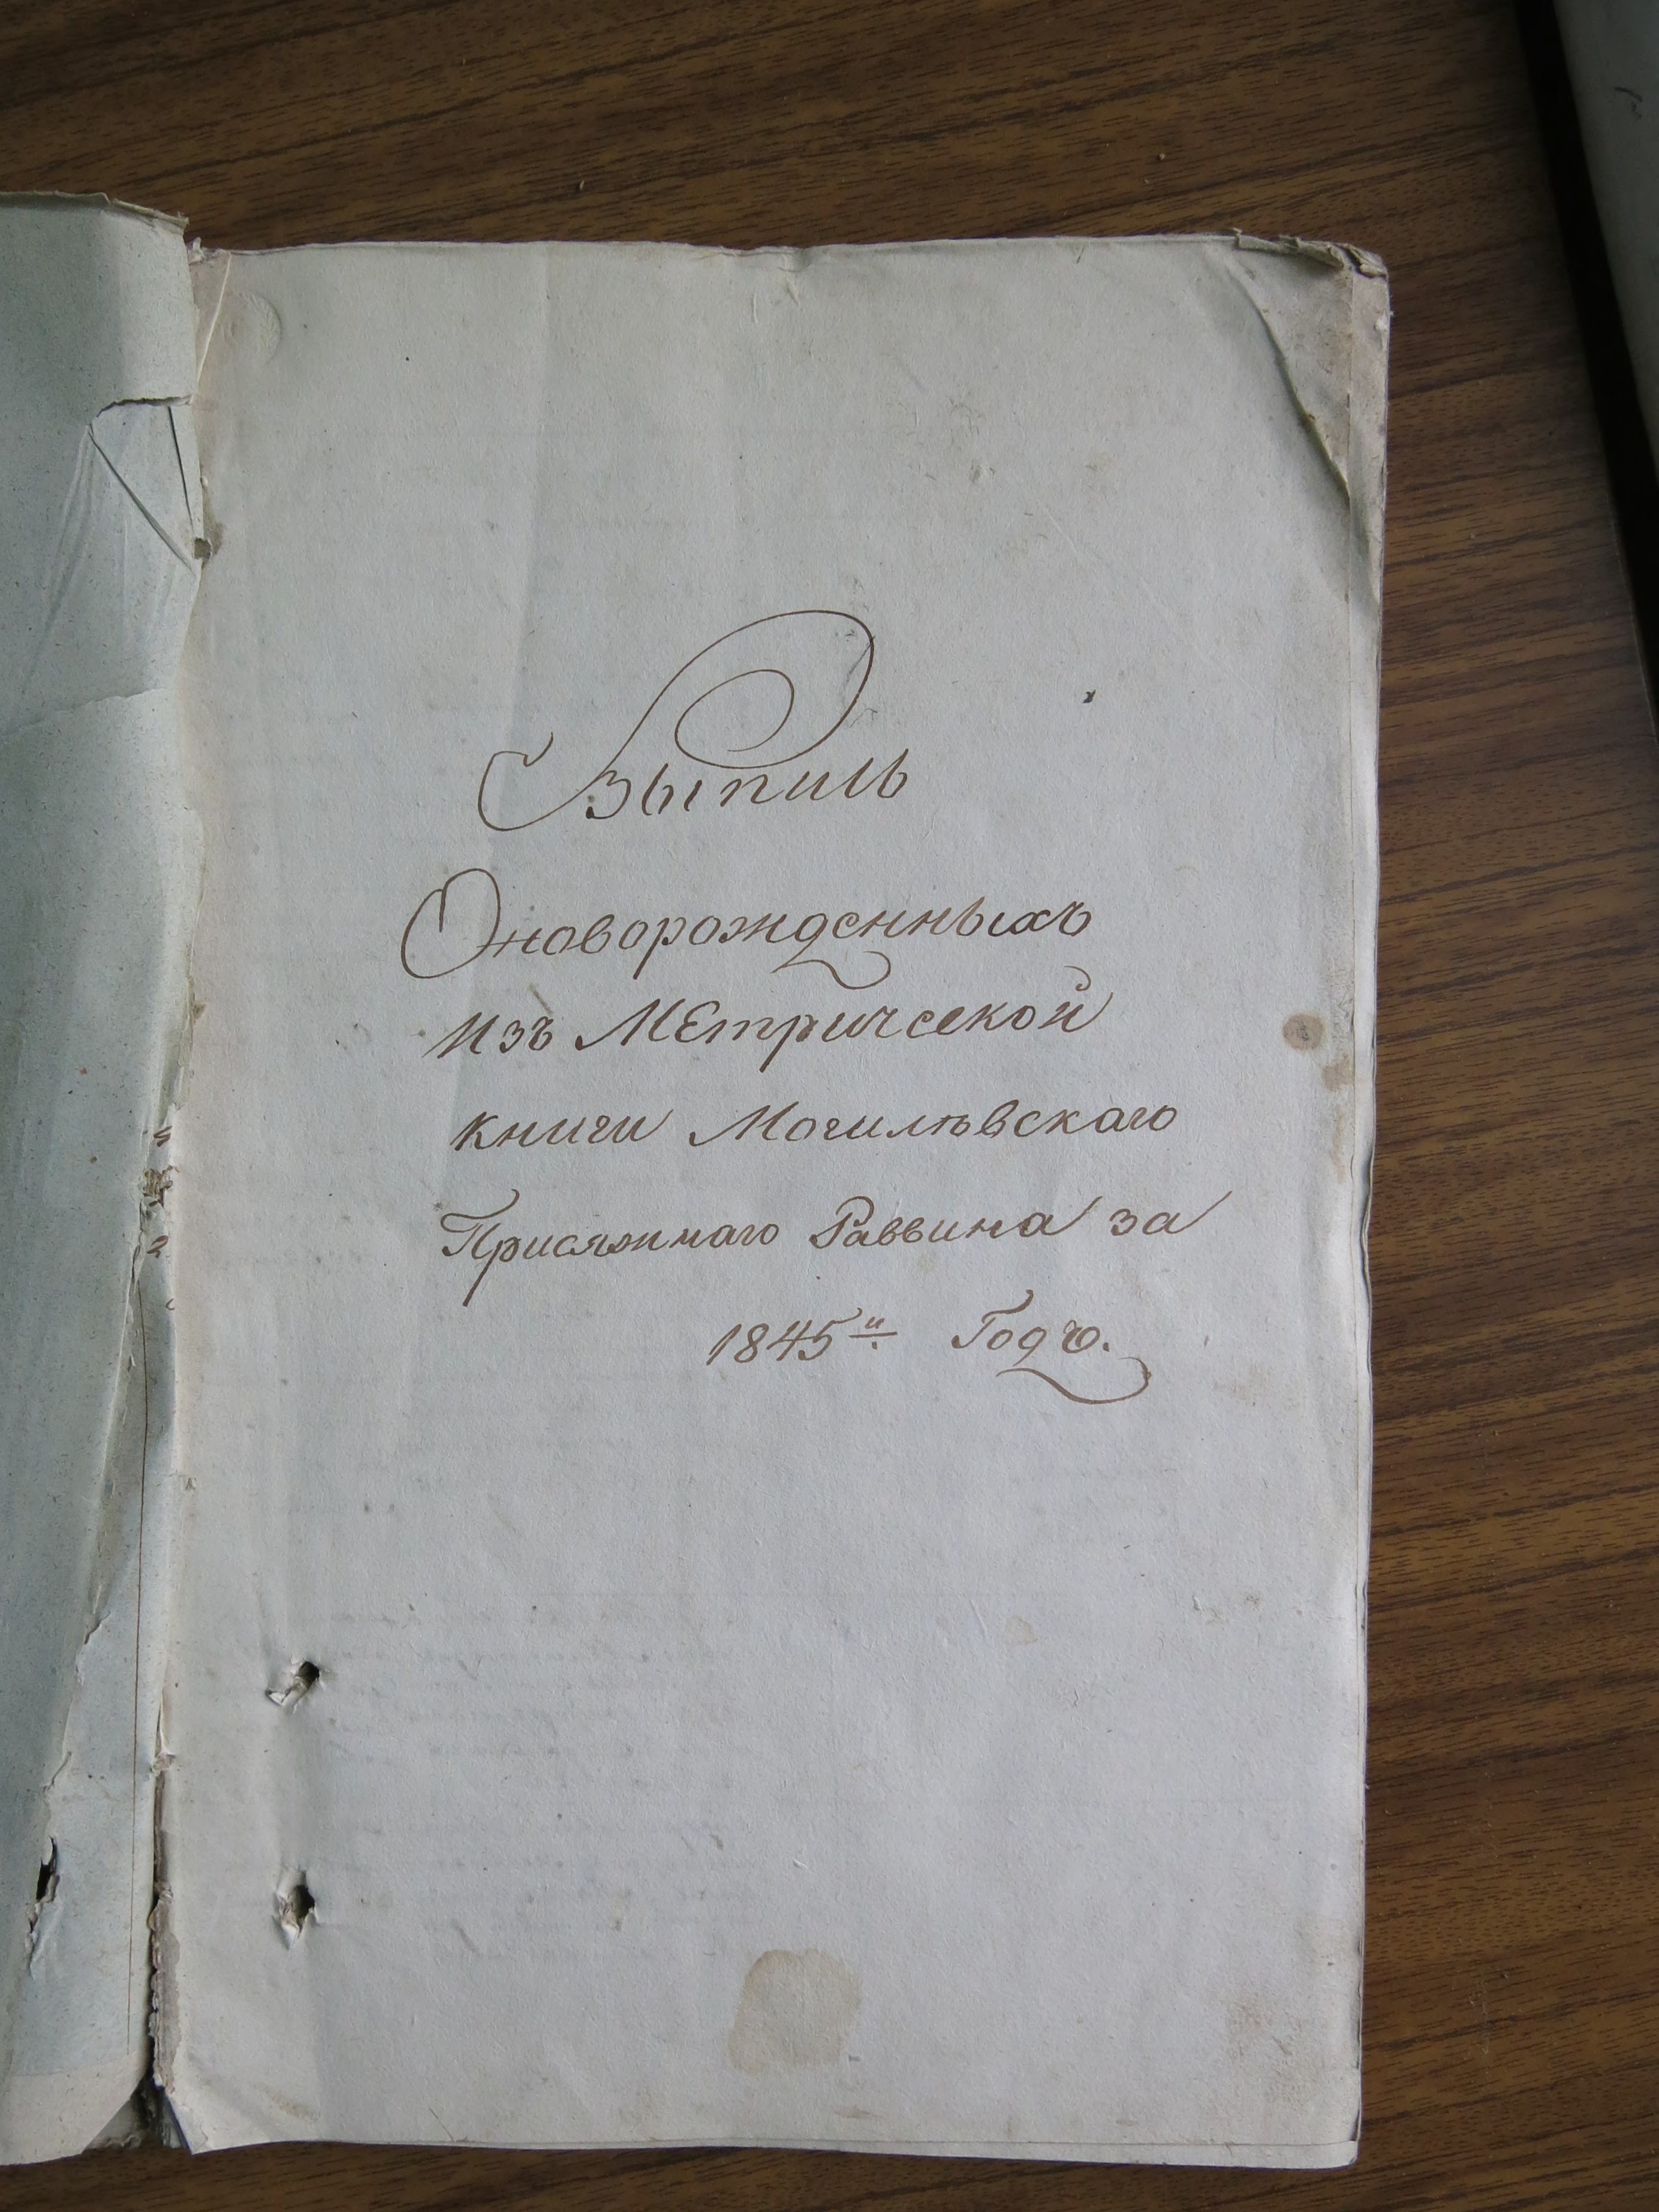 Выпись
О новорожденныхъ
Изъ Метрической
книги Могилѣвскаго
Присяжнаго Раввина за
1845й Годъ.